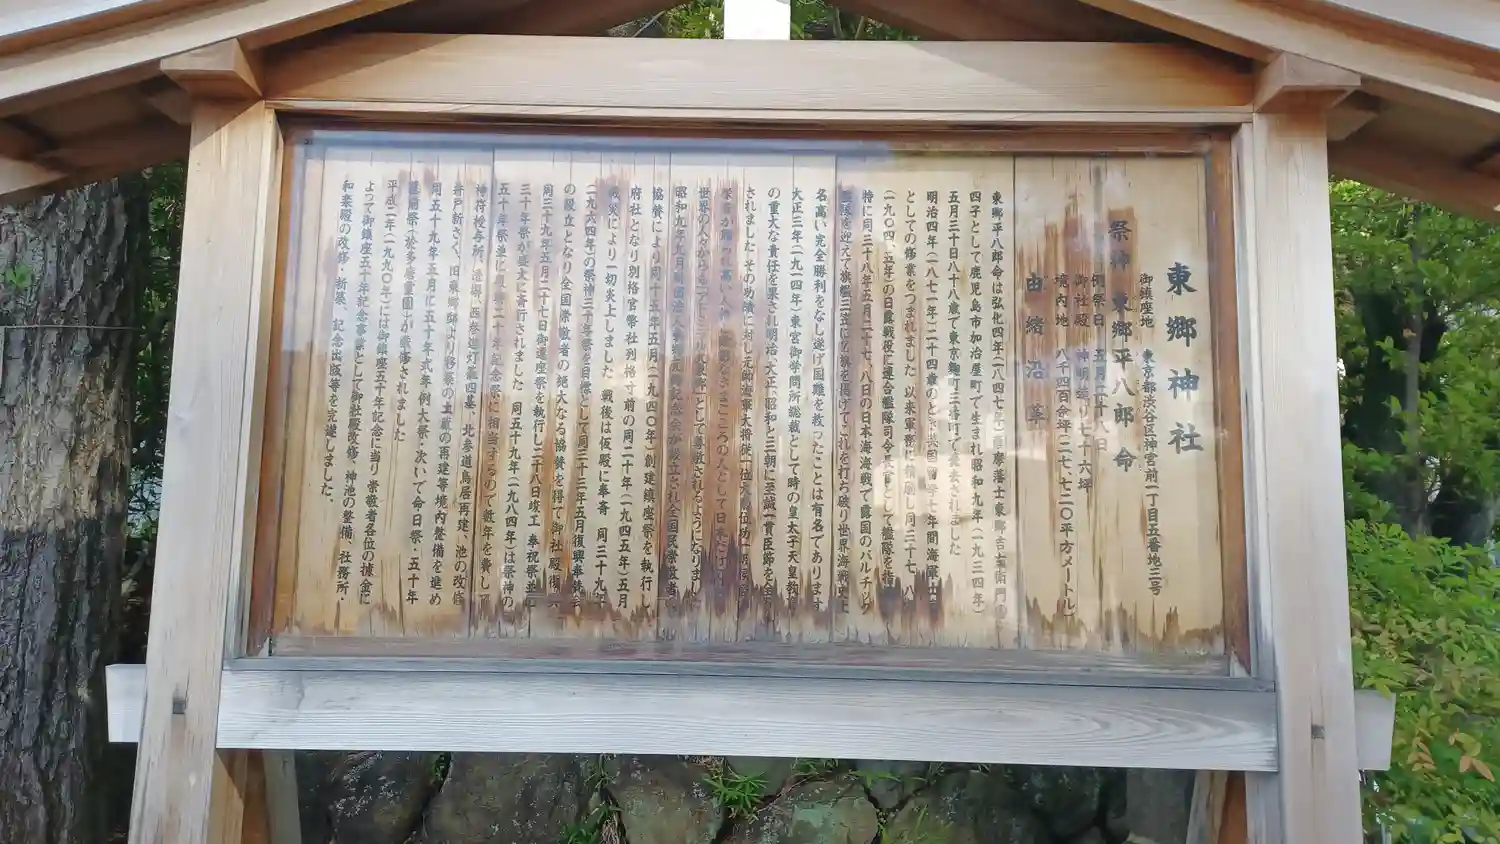 東郷神社
御鎮座地 東京都渋谷区神宮前一丁目五番地三号
祭神 東郷平八郎命
例祭日 五月二十八日
御社殿 神明造り七十六坪
境内地 八千四百余坪(二七、七二〇平方メートル)
由緒沿革
東郷平八郎命は弘化四年(一八四七年)薩摩藩士東郷吉左衛門の
四子として鹿児島市加治屋町で生まれ昭和九年(一九三四年)
五月三十日八十八歳で東京麹町三番町で薨去されました
明治四年(一八七一年)二十四歳のとき英国 七年間海軍
としての修業をつまれました 以来軍務に精励し同三十七、八
(一九〇四、五年)の日露戦役に連合艦隊司令長官として艦隊を指
特に同三十八年五月二十七、八日の日本海海戦で露国のバルチック
艦隊を迎えて旗艦三笠にZ旗を掲げてこれを打ち破り世界海戦史上
名高い完全勝利をなし遂げ国難を救ったことは有名であります
大正三年(一九一四年)東宮御学問所総裁として時の皇太子天皇教育
の重大な責任を果され明治、大正、昭和と三朝に至誠一貫臣節を全う
されました その功績に対し元帥海軍大将従一位大勲位功一級侯爵
高い人 まごころの人として日本だけ
世界の人々からも として尊敬されるようになりました
昭和九年九月財団法人東郷元帥記念会が設立され全国民崇敬者の
協賛により同十五年五月(一九四〇年)創建鎮座祭を執行し
府社となり別格官幣社列格寸前の同二十年(一九四五年)五月
戦災により一切炎上しました 戦後は仮殿に奉斎 同三十九年
(一九六四年)の祭神三十年祭を目標として同三十三年五月復興奉賛会
の設立となり全国崇敬者の絶大なる協賛を得て御社殿復興
同三十九年五月二十七日御遷座祭を執行し二十八日竣工奉祝祭並に
三十年祭が盛大に斎行されました 同五十九年(一九八四年)は祭神の
五十年祭並に復興二十年記念祭に相当するので数年を費し
神符授与所、透塀、西参道灯籠四基、北参道鳥居再建、池の改修
井戸新さく、旧東郷邸より移築の土蔵の再建等境内整備を進め
同五十九年五月に五十年式年例大祭・次いで命日祭・五十年
墓前祭(於多磨霊園)が厳修されました
平成二年(一九九〇年)には御鎮座五十年記念に当り崇敬者各位の據金に
よって御鎮座五十年記念事業として御社殿改修、神池の整備、社務所・
和楽殿の改修・新築、記念出版等を完遂しました。